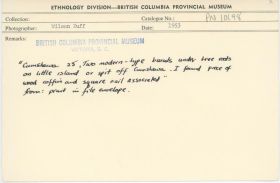 ETHNOLOGY DIVISION—BRITISH COLUMBIA PROVINCIAL MUSEUM
Collection: Catalogue No.: PN 10198
Photographer: Wilson Duff Date: 1953
Remarks:
BRITISH COLUMBIA PROVINCIAL MUSEUM
VICTORIA, B. C.
"Cumshewa 25, Two modern-type burials under tree roots
on little island or spit off Cumshewa. I found piece of
wood coffin and square nail associated"
from: print in file envelope.